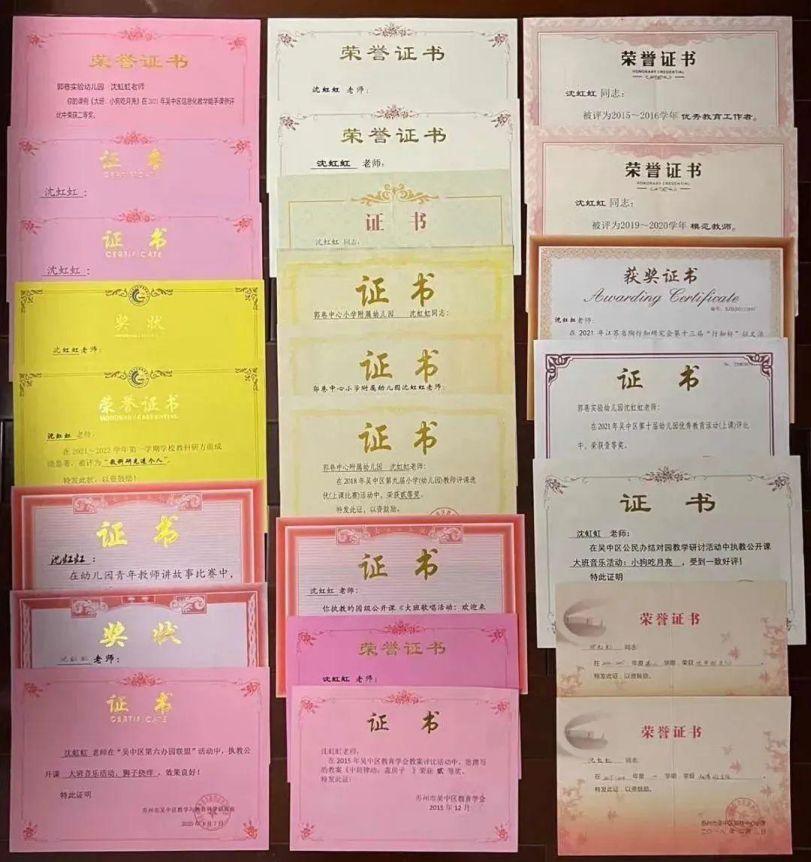 荣誉证书
郭巷实验幼儿园 沈虹虹老师
你的课例《大班:小狗吃月亮》在2021年吴中区信息化教学能手课例评
比中荣获二等奖。
证书
CERTIFICATE
沈虹虹:
证书
CERTIFICATE
沈虹虹:
奖状
沈虹虹老师:
荣誉证书
HONORARY CREDENTIAL
沈虹虹 老师:
在2021~2022学年第一学期学校教科研方面成
绩显著,被评为“教科研先进个人”。
特发此状,以资鼓励!
证书
沈虹虹:
在幼儿园青年教师讲故事比赛中,
奖状
沈虹虹 老师:
证书
CERTIFICATE
沈虹虹 老师在“吴中区第六办园联盟”活动中,执教公
开课 大班音乐活动:狮子挠痒,效果良好!
特此证明
2020年9月7日
荣誉证书
沈虹虹 老师:
荣誉证书
沈虹虹 老师:
证书
沈虹虹 同志:
证书
郭巷中心小学附属幼儿园 沈虹虹同志:
证书
郭巷中心小学附属幼儿园沈虹虹老师:
证书
郭巷中心附属幼儿园 沈虹虹老师:
在2018年吴中区第九届小学(幼儿园)教师评课选
优(上课比赛)活动中,荣获贰等奖。
特发此证,以资鼓励。
证书
沈虹虹 老师:
你执教的园级公开课《大班歌唱活动:欢迎来
荣誉证书
沈虹虹 老师:
证书
沈虹虹老师,
在2015年吴中区教育学会教案评比活动中,您撰写
的教案《中班律动:盖房子 》荣获 贰 等奖。
特发此证:
苏州市吴中区教育学会
2015年12月
荣誉证书
HONORARY CREDENTIAL
沈虹虹 同志:
被评为2015~2016学年 优秀教育工作者。
荣誉证书
HONORARY CREDENTIAL
沈虹虹 同志:
被评为2019~2020学年 模范教师。
获奖证书
Awarding Certificate
沈虹虹老师:
在2021年江苏省陶行知研究会第十三届“行知杯”征文活
证书
郭巷实验幼儿园沈虹虹老师:
在2021年吴中区第十届幼儿园优秀教育活动(上课)评比
中,荣获壹等奖。
证书
沈虹虹 老师:
在吴中区公民办结对园教学研讨活动中执教公开课
大班音乐活动:小狗吃月亮 ,受到一致好评!
特此证明
荣誉证书
沈虹虹 同志:
特发此证,以资鼓励。
荣誉证书
沈虹虹 同志:
特发此证,以资鼓励。